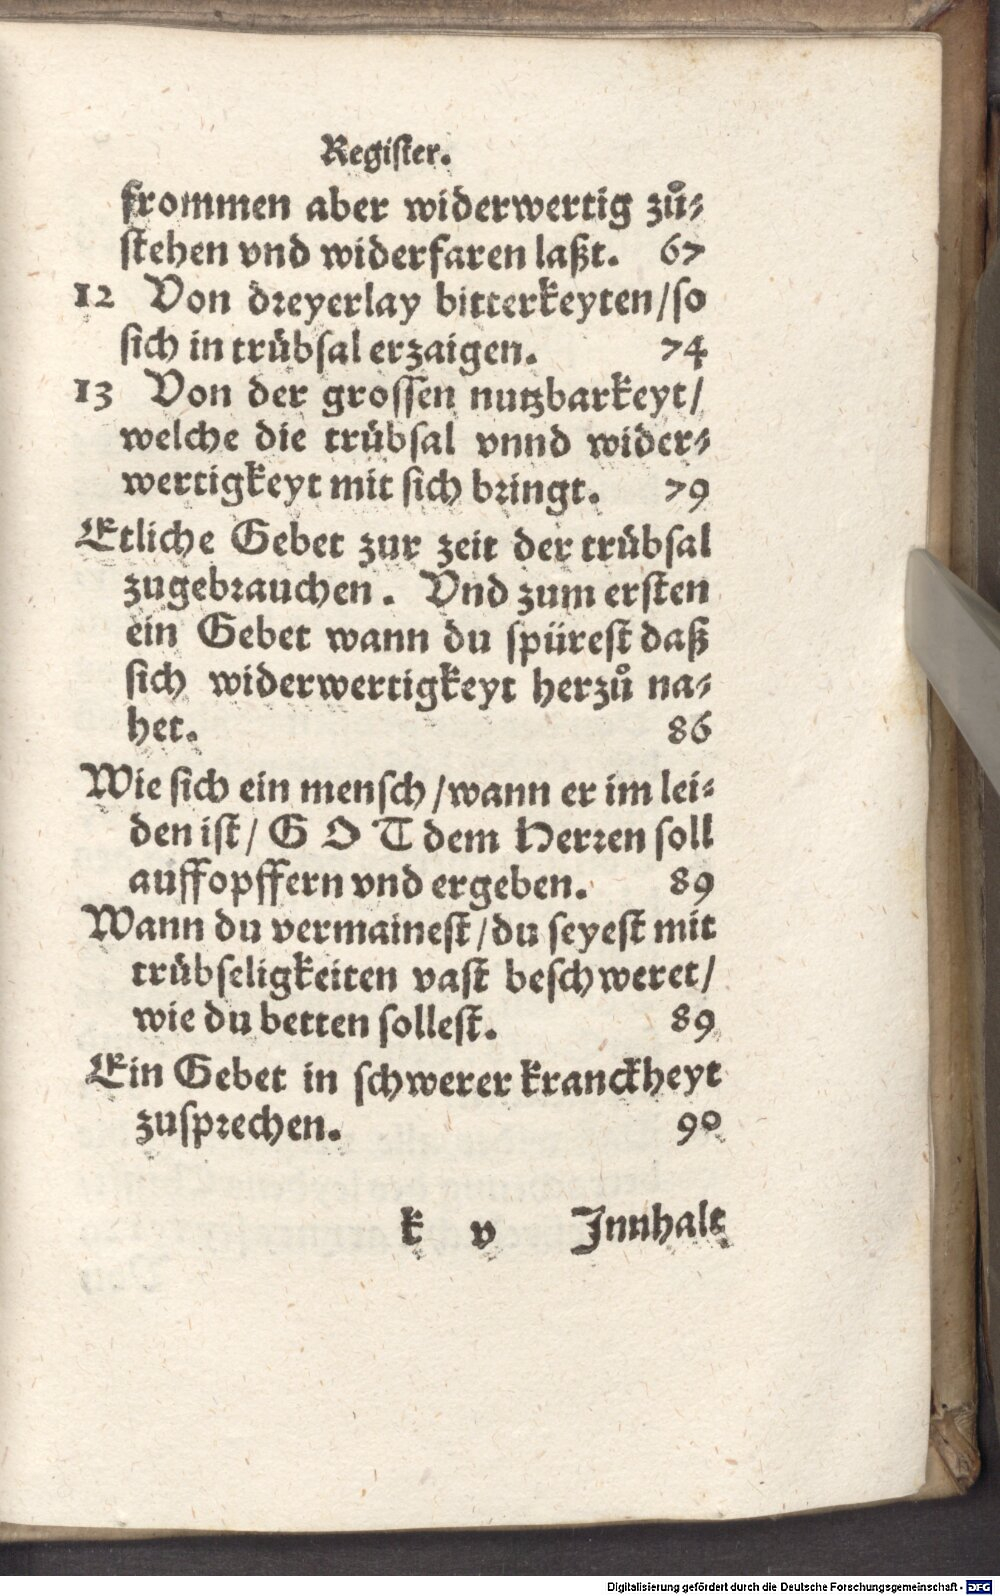 Register.
frommen aber widerwertig zů⸗
stehen vnd widerfaren laßt. 67
12 Von dreyerlay bitterkeyten/so
sich in trübsal erzaigen. 74
13 Von der grossen nutzbarkeyt/
welche die trübsal vnnd wider⸗
wertigkeyt mit sich bringt. 79
Etliche Gebet zur zeit der trübsal
zugebrauchen. Vnd zum ersten
ein Gebet wann du spürest daß
sich widerwertigkeyt herzů na⸗
het. 86
Wie sich ein mensch/wann er im lei⸗
den ist/ G O T dem Herren soll
auffopffern vnd ergeben. 89
Wann du vermainest/du seyest mit
trübseligkeiten vast beschweret/
wie du betten sollest. 89
Ein Gebet in schwerer kranckheyt
zusprechen. 90
k v Innhalt
Digitalisierung gefördert durch die Deutsche Forschungsgemeinschaft - DFG